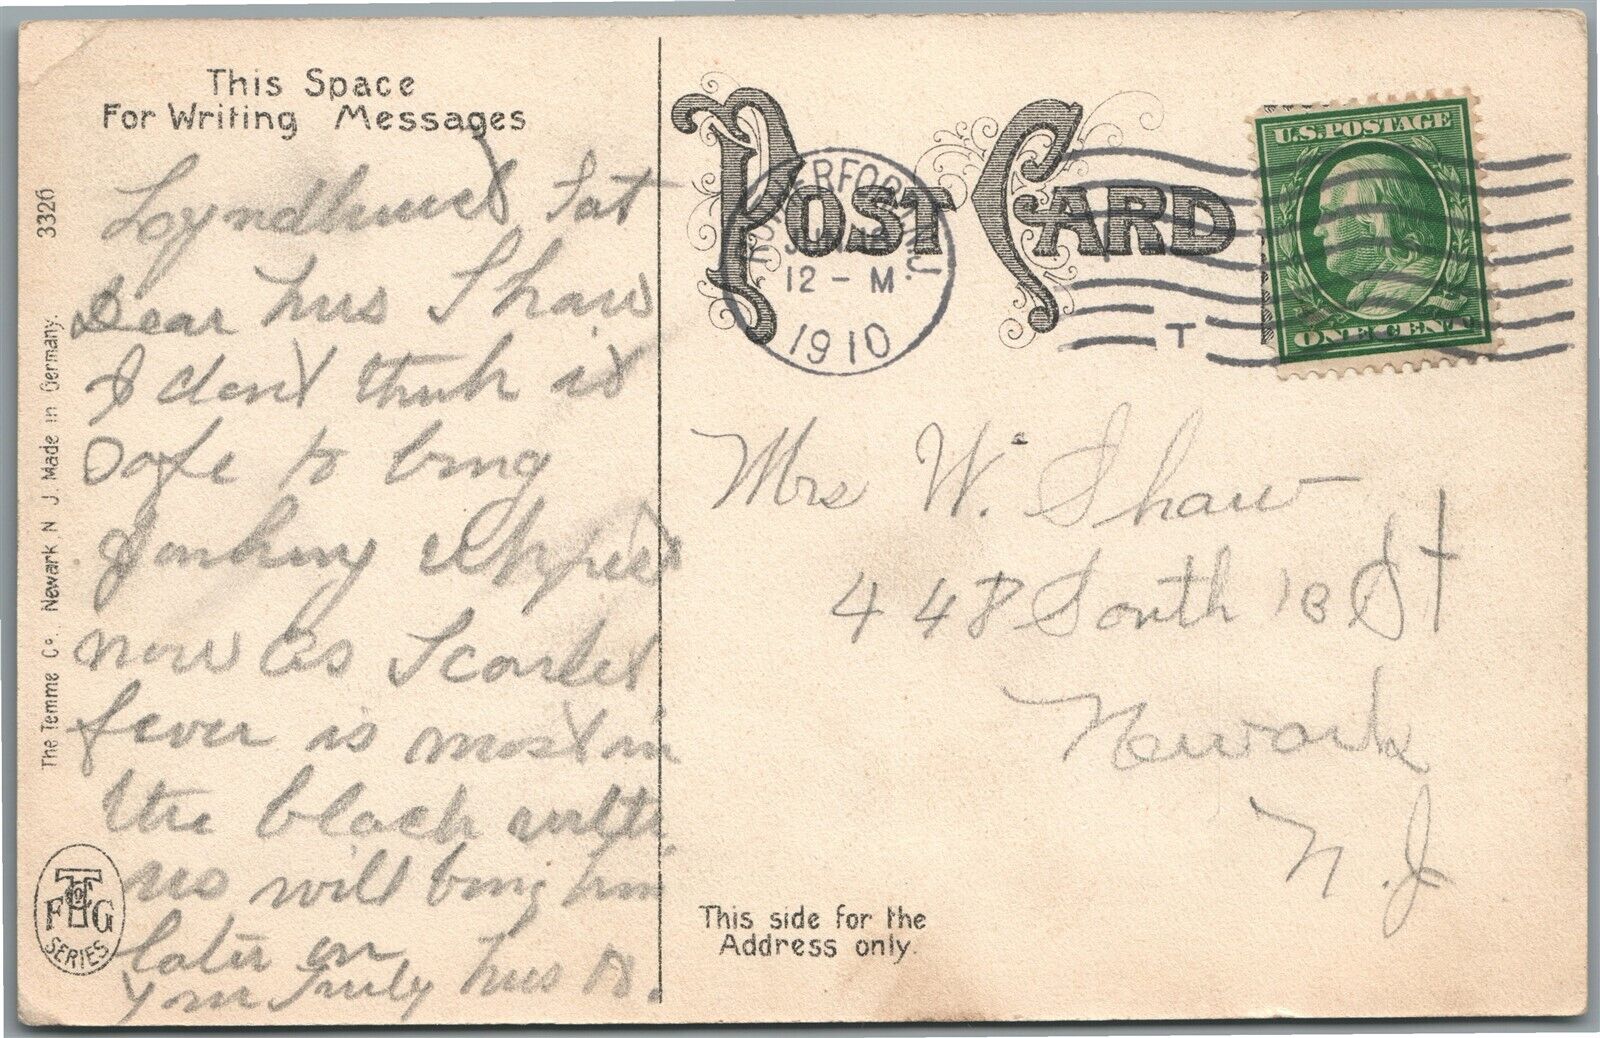 This Space
For Writing Messages
Lyndhurst Sat
Dear Mrs Shaw
I dont think it
safe to bring
now as Scarlet
fever is most in
the block with
us will bring him
later on
Your Truly Mrs
3326
The Temme Co., Newark, N. J. Made in Germany.
F T G
SERIES
POST CARD
RUTHERFORD N.J.
12 - M
1910
T
U.S. POSTAGE
ONE CENT
Mrs W. Shaw
448 South 18 St
Newark
N.J
This side for the
Address only.